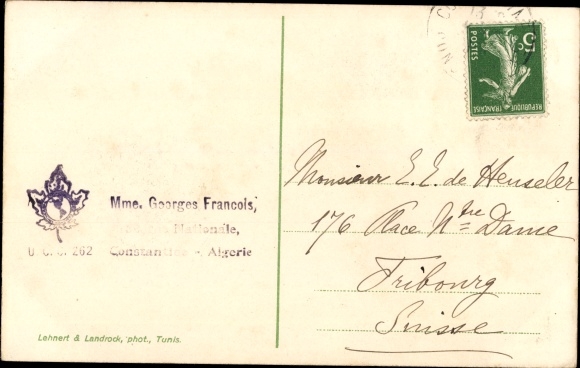 5c
POSTES
RÉPUBLIQUE
FRANÇAISE
Mme. Georges Francois,
Nationale,
U. C. C. 262
Constantine - Algerie
Monsieur E. E. de Henseler
176 Place Ntre Dame
Fribourg
Suisse
Lehnert & Landrock, phot., Tunis.